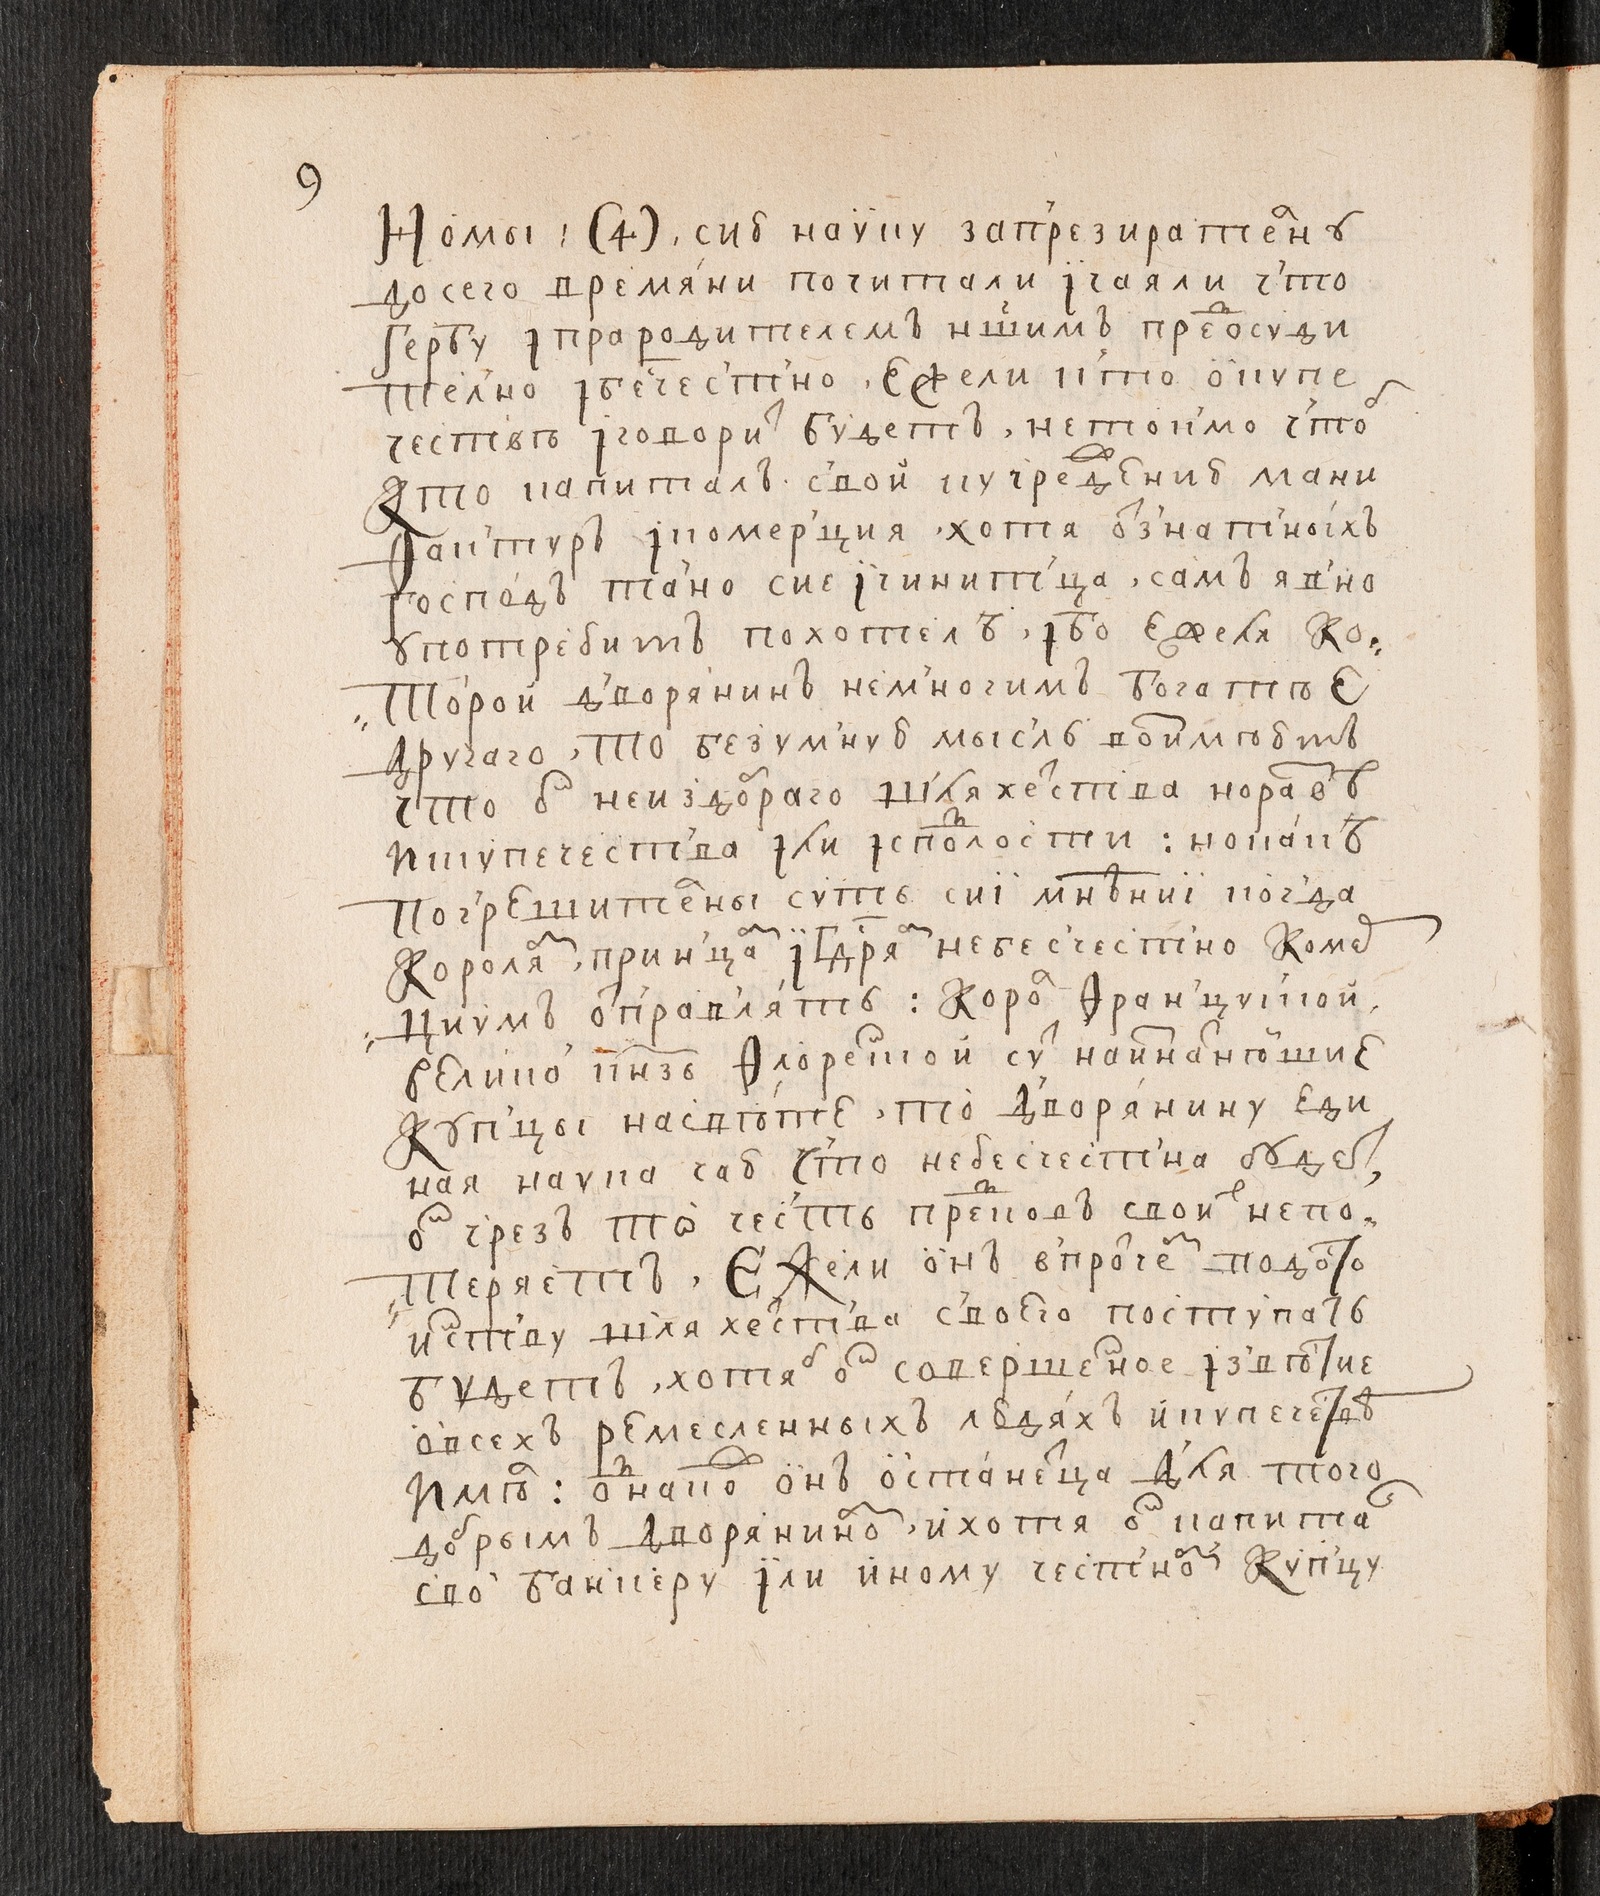 9
Но мы : (4) , сию науку за презирателну
до сего времяни почитали ї чаяли что
гербу і прародителемъ ншимъ предосуди
телно і бесчестно , Ежели кто о купе
честве і говорить будетъ , не токмо чтоб
кто капиталъ свой к учреждению мани
фактуръ і комерция , хотя от знатныхъ
господъ тайно сие ї чинитца , самъ явно
употребить похотелъ , ібо ежеля Ко„
„торой дворянинъ немногимъ богатѣе
другаго , то безумную мысль воимѣютъ
что от неиздобраго шляхетства норавовъ
к купечества іли іс подлости : но какъ
погрешителны суть сиї мнѣниї когда
Королямъ , принцамъ ї Гдрямъ небесчестно Коме
„рциумъ отправлять : Король Француской ,
великой кнзь Флоренской суть наизнатнѣйшие
Купцы на свѣте , то дворянину еди
ная наука чаю что небесчестна будетъ ,
от чрез то честь предковъ своих не по„
„теряетъ , Ежели онъ впрочемъ подобно
инству шляхетства своего поступать
будетъ , хотяб он совершенное ізвѣстие
о всехъ ремесленныхъ людяхъ и купечествѣ
имѣлъ : однако онъ останетца для того
добрымъ дворяниномъ , и хотя он капиталъ
свой банкеру їли иному честному Купцу